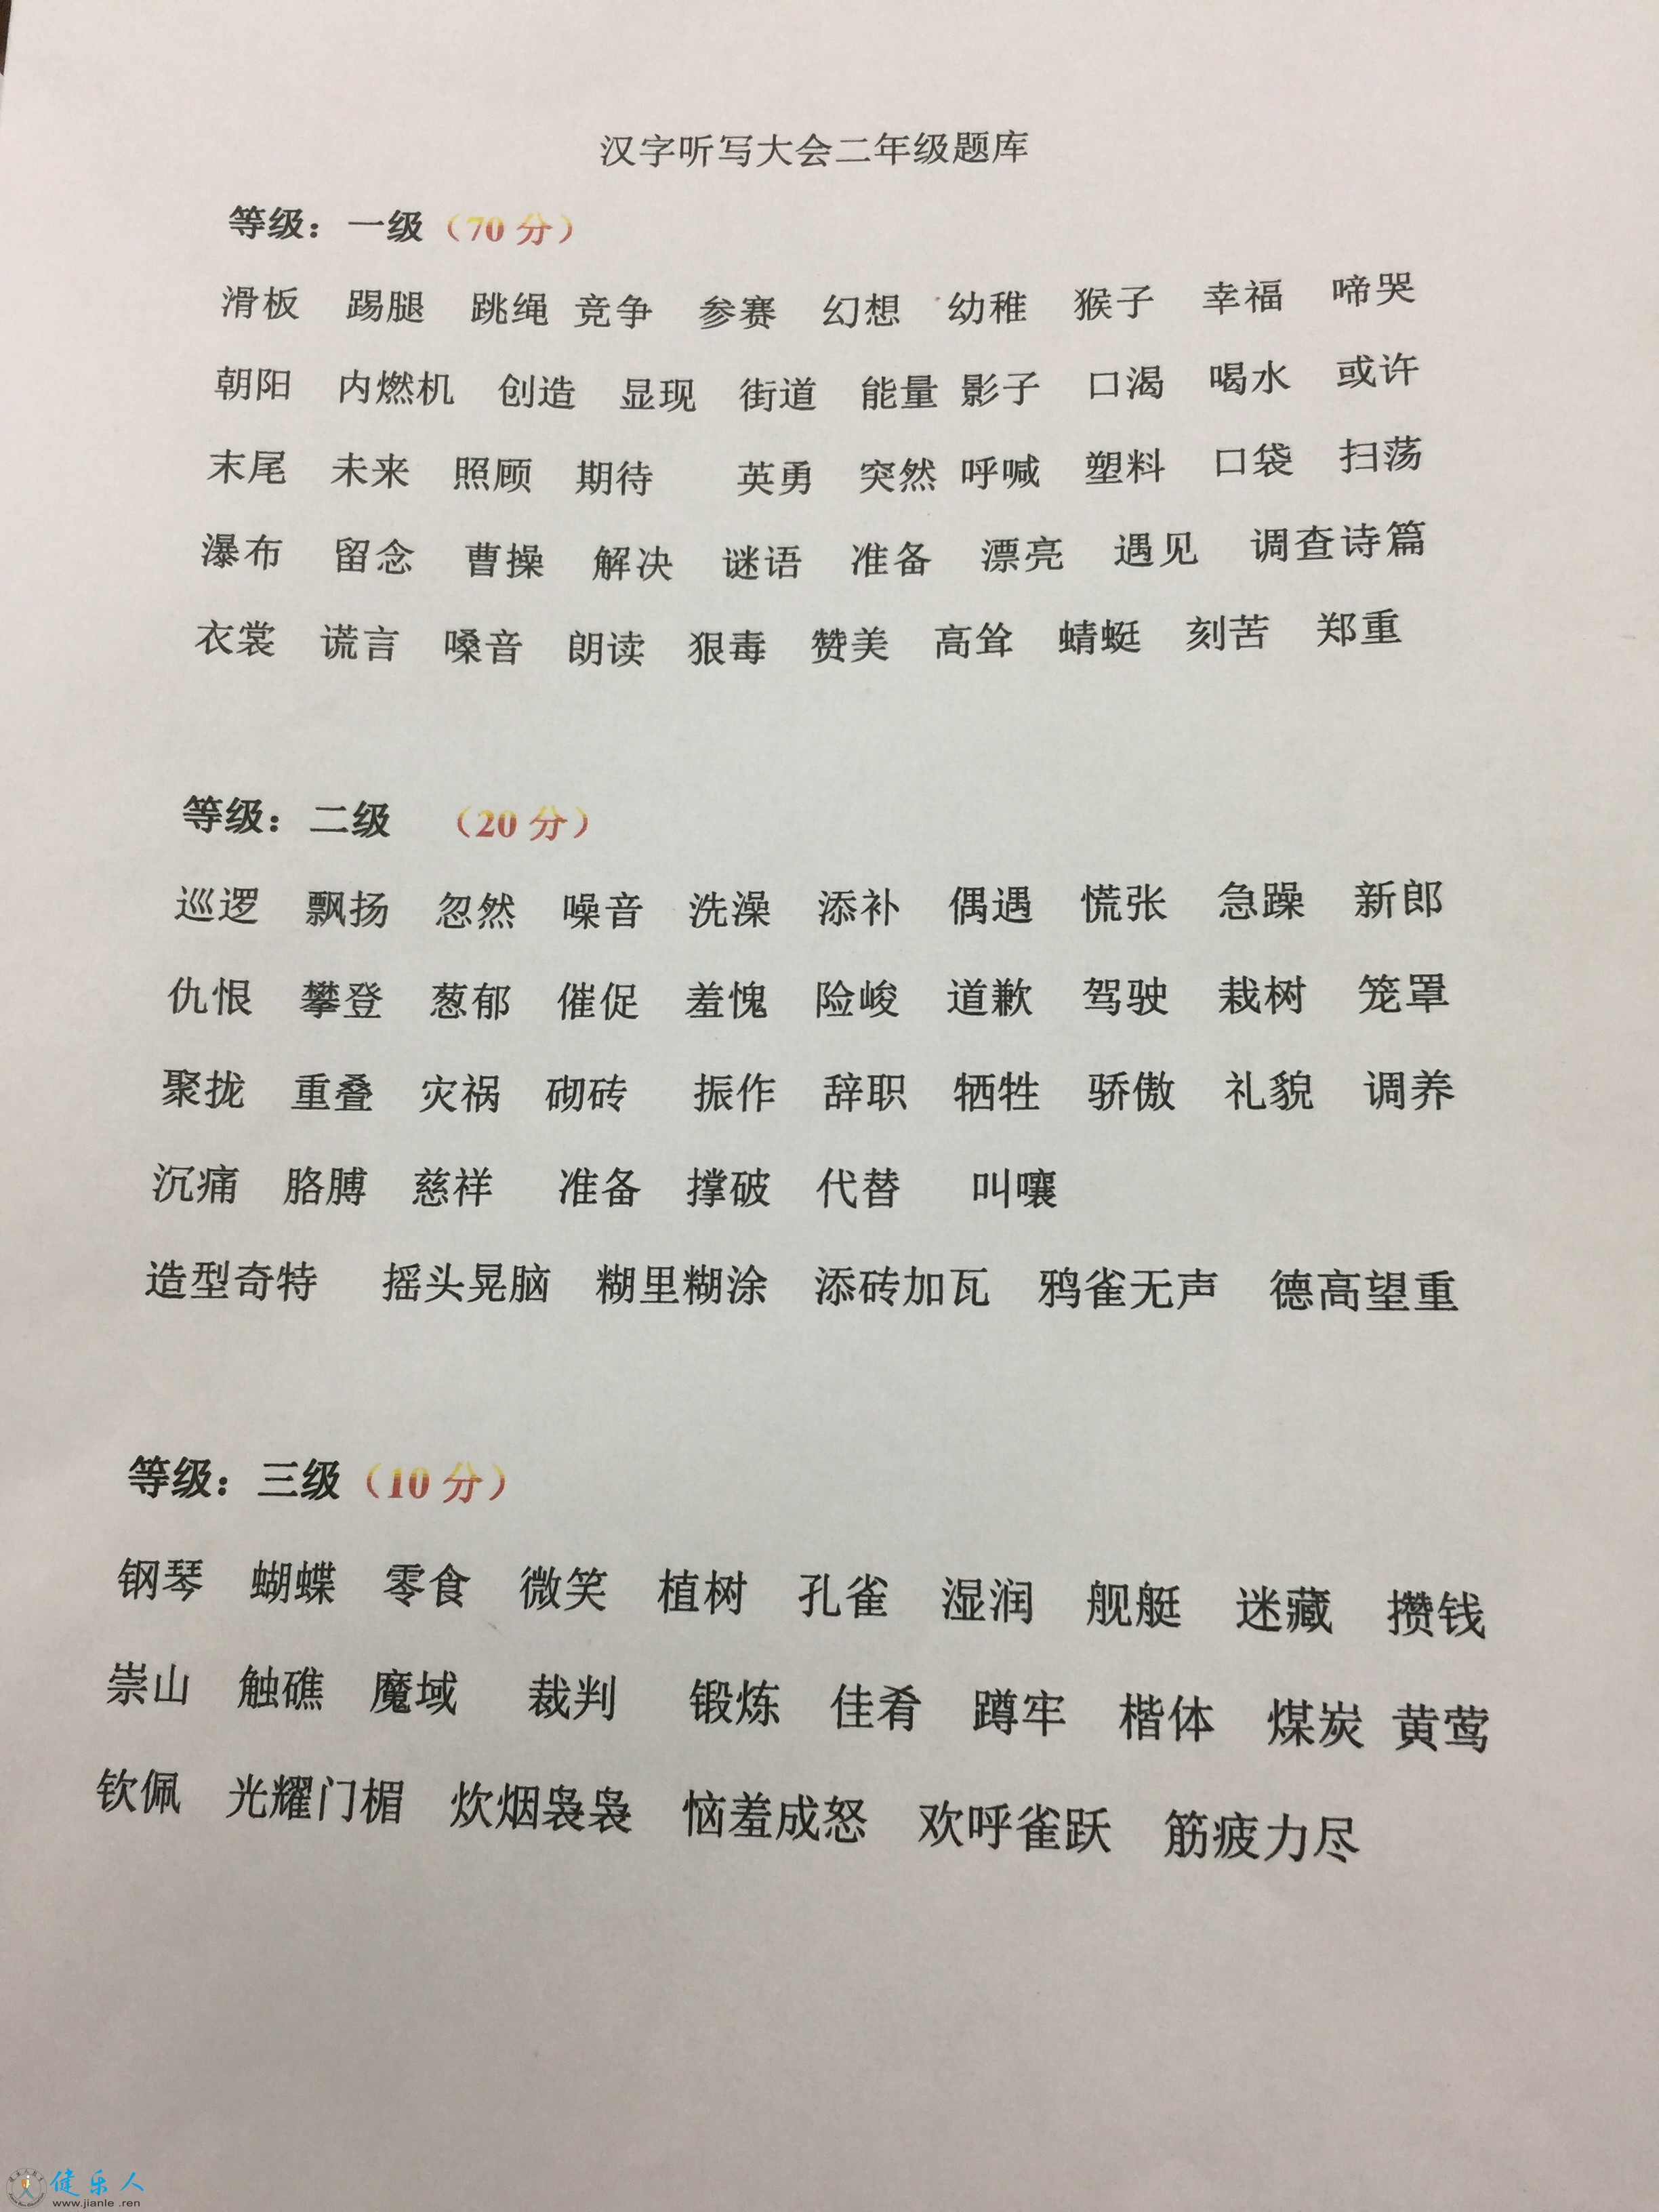 汉字听写大会二年级题库
等级：一级（70 分）
滑板 踢腿 跳绳 竞争 参赛 幻想 幼稚 猴子 幸福 啼哭
朝阳 内燃机 创造 显现 街道 能量 影子 口渴 喝水 或许
末尾 未来 照顾 期待 英勇 突然 呼喊 塑料 口袋 扫荡
瀑布 留念 曹操 解决 谜语 准备 漂亮 遇见 调查诗篇
衣裳 谎言 嗓音 朗读 狠毒 赞美 高耸 蜻蜓 刻苦 郑重
等级：二级 （20 分）
巡逻 飘扬 忽然 噪音 洗澡 添补 偶遇 慌张 急躁 新郎
仇恨 攀登 葱郁 催促 羞愧 险峻 道歉 驾驶 栽树 笼罩
聚拢 重叠 灾祸 砌砖 振作 辞职 牺牲 骄傲 礼貌 调养
沉痛 胳膊 慈祥 准备 撑破 代替 叫嚷
造型奇特 摇头晃脑 糊里糊涂 添砖加瓦 鸦雀无声 德高望重
等级：三级（10 分）
钢琴 蝴蝶 零食 微笑 植树 孔雀 湿润 舰艇 迷藏 攒钱
崇山 触礁 魔域 裁判 锻炼 佳肴 蹲牢 楷体 煤炭 黄莺
钦佩 光耀门楣 炊烟袅袅 恼羞成怒 欢呼雀跃 筋疲力尽
健乐人
www.jianle .ren